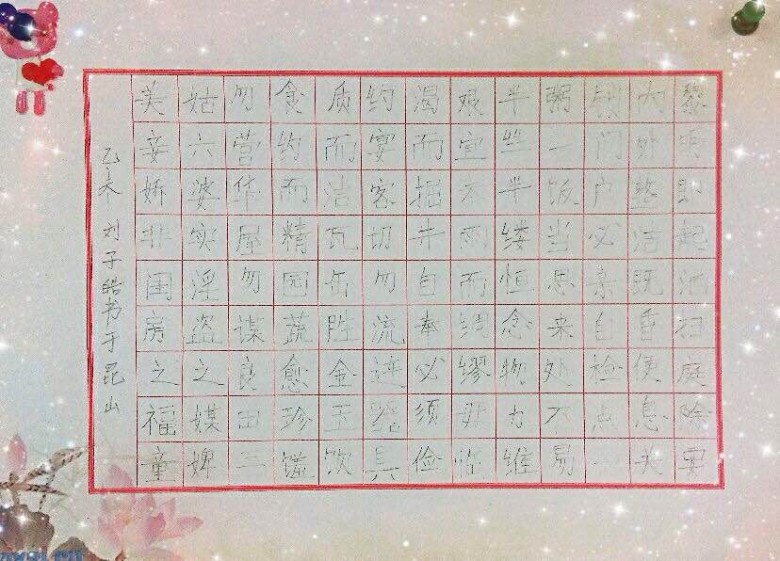 黎明即起洒扫庭除要
内外整洁既昏便息关
锁门户必亲自检点一
粥一饭当思来处不易
半丝半缕恒念物力维
艰宜未雨而绸缪毋临
渴而掘井自奉必须俭
约宴客切勿流连器具
质而洁瓦缶胜金玉饮
食约而精园蔬愈珍馐
勿营华屋勿谋良田三
姑六婆实淫盗之媒婢
美妾娇非闺房之福童
乙未 刘子皓书于昆山